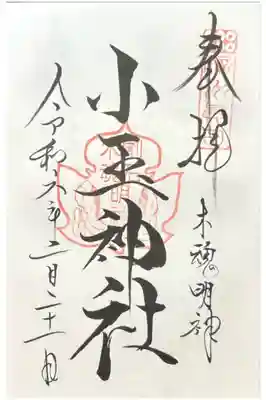 奉拝
明神
小玉神社
令和六年二月二十一日